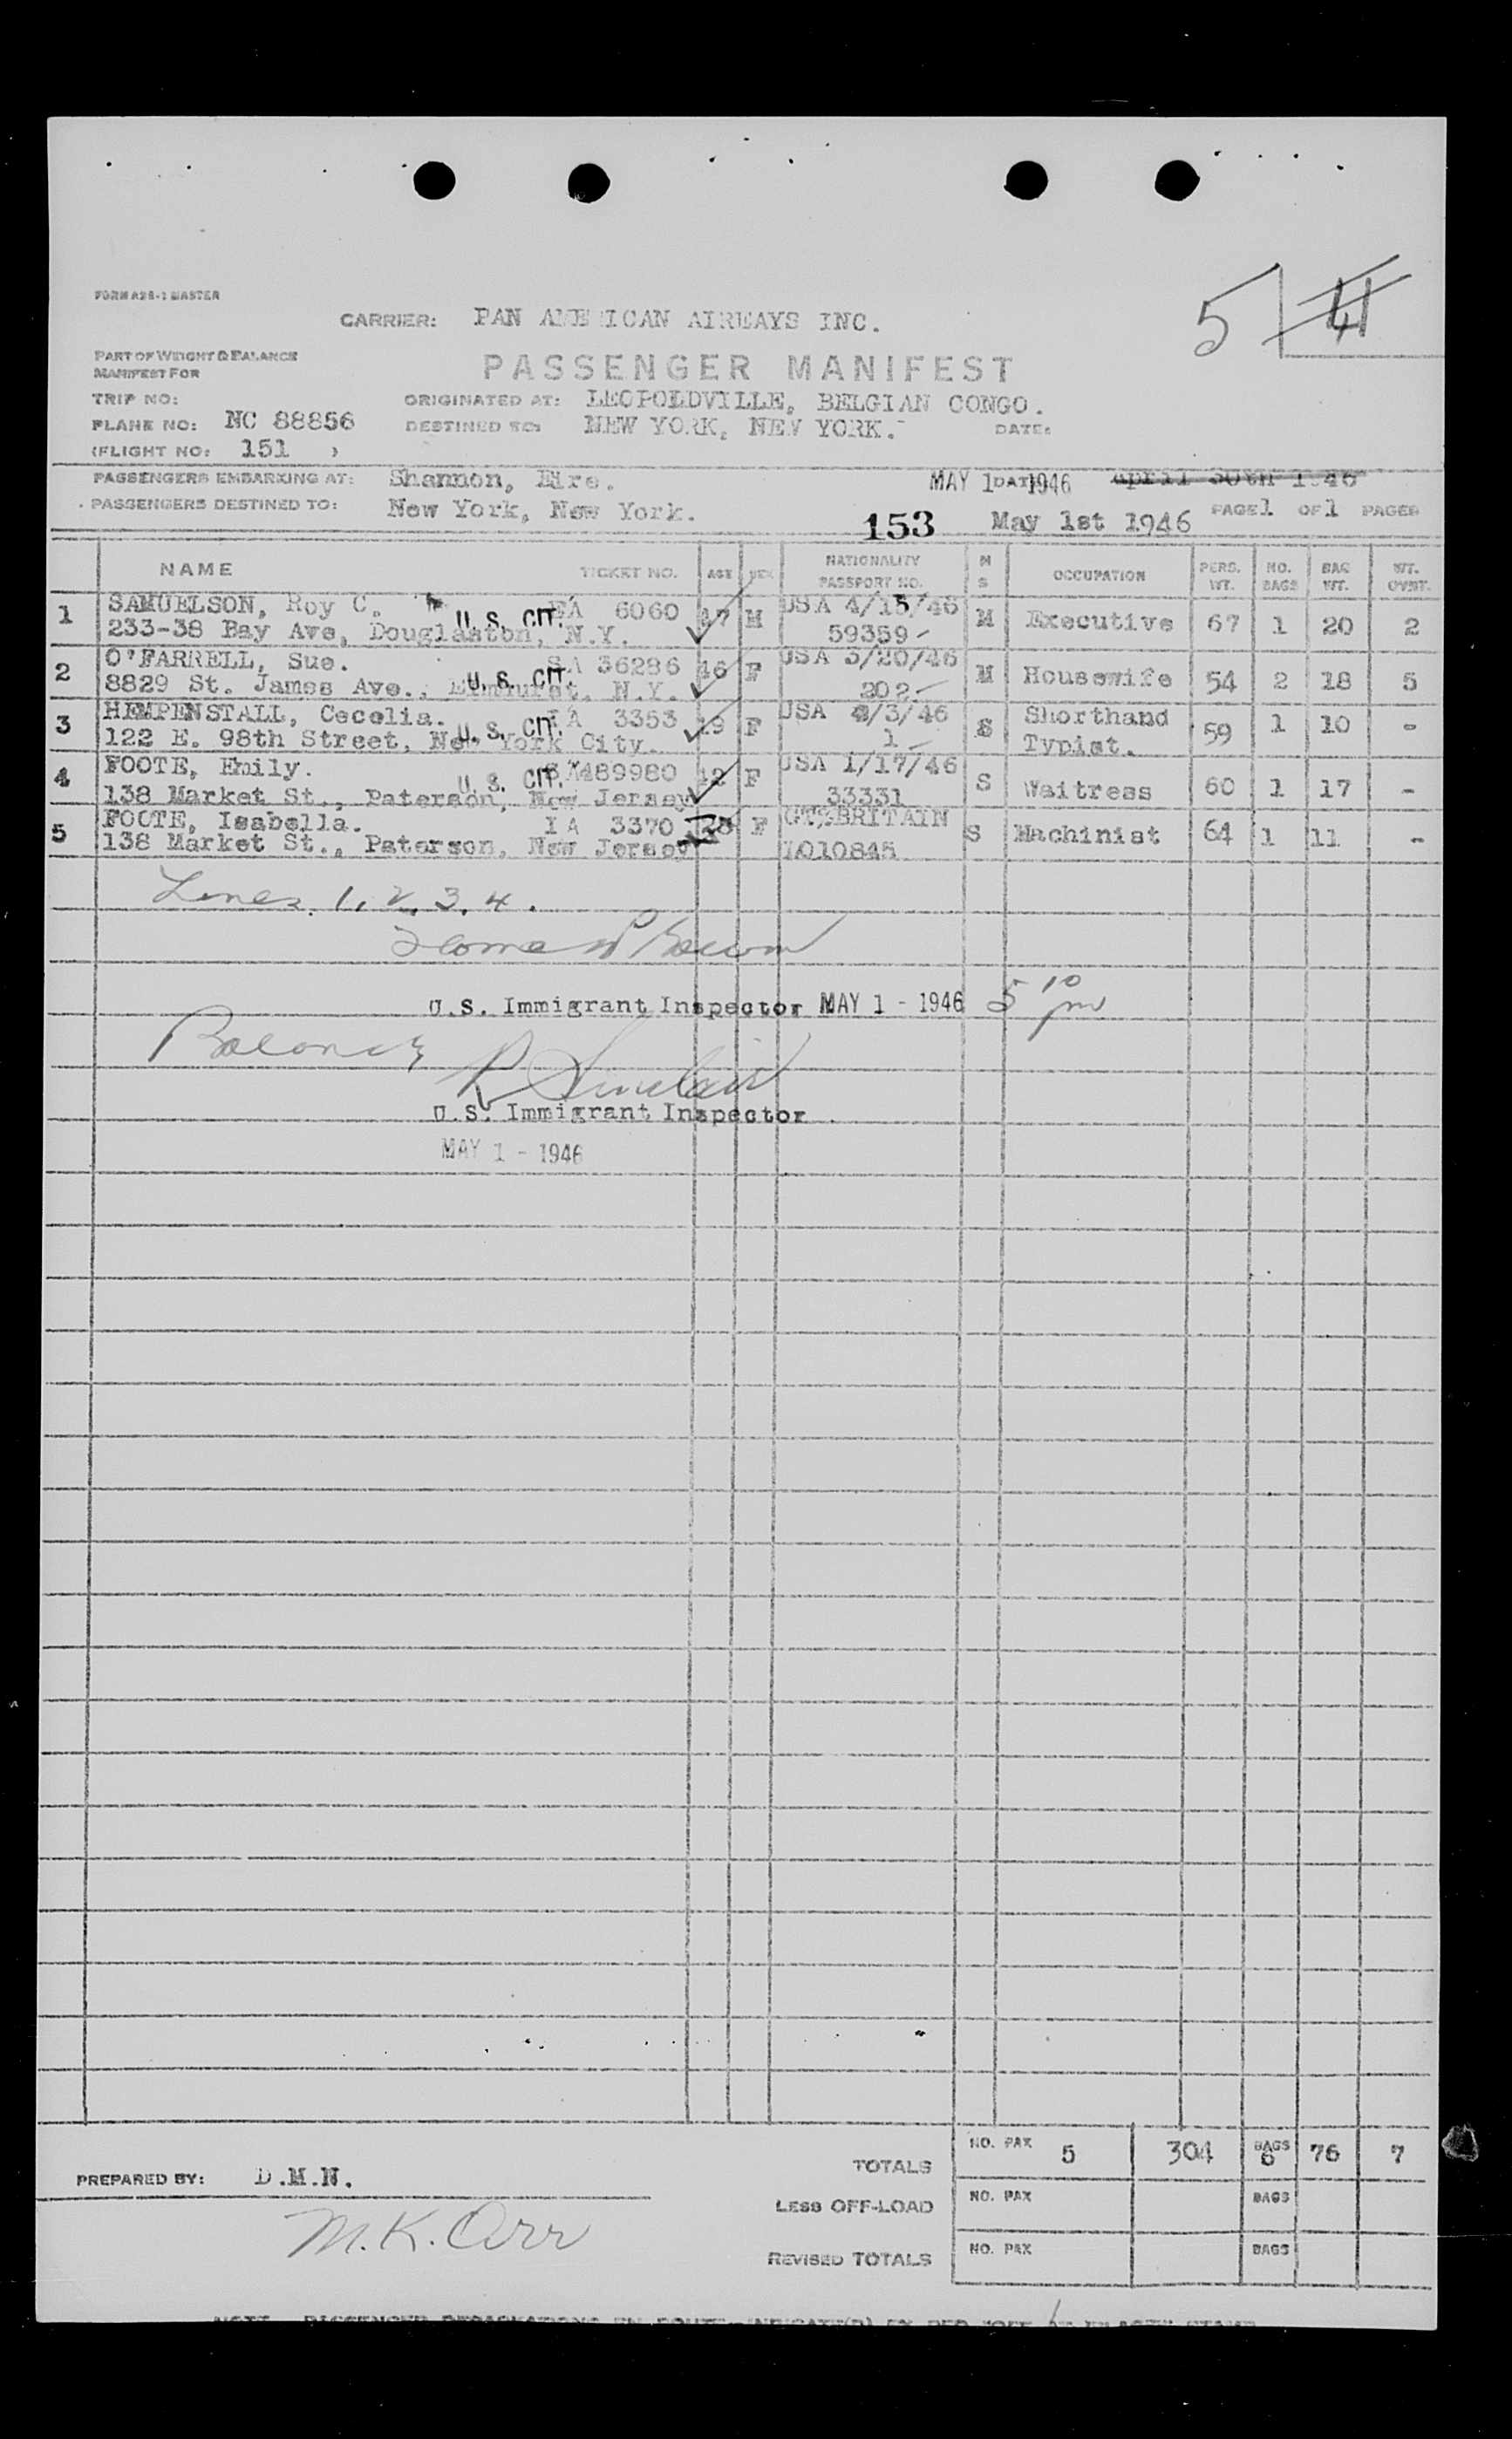 FORM A28-1 MASTER
CARRIER: PAN AMERICAN AIRWAYS INC.
5 4
PART OF WEIGHT & BALANCE
MANIFEST FOR
PASSENGER MANIFEST
TRIP NO: ORIGINATED AT: LEOPOLDVILLE, BELGIAN CONGO.
PLANE NO: NC 88856 DESTINED TO: NEW YORK, NEW YORK. DATE:
(FLIGHT NO: 151 )
PASSENGERS EMBARKING AT: Shannon, Eire. MAY 1 DATE 1946 April 30th 1946
PASSENGERS DESTINED TO: New York, New York. 153 May 1st 1946 PAGE 1 OF 1 PAGES
NAME TICKET NO. AGE SEX NATIONALITY PASSPORT NO. M S OCCUPATION PERS. WT. NO. BAGS BAG WT. WT. OVST.
1 SAMUELSON, Roy C. U. S. CIT. 6060 47 M USA 4/15/46 M Executive 67 1 20 2
233-38 Bay Ave, Douglaston, N.Y. 59359
2 O'FARRELL, Sue. U. S. CIT. 36286 46 F USA 3/20/46 M Housewife 54 2 18 5
8829 St. James Ave., Elmhurst, N.Y. 202
3 HEMPENSTALL, Cecelia. U. S. CIT. IA 3353 19 F USA /3/46 S Shorthand 59 1 10 -
122 E. 98th Street, New York City. 1 Typist.
4 FOOTE, Emily. U. S. CIT. 489980 42 F USA 1/17/46 S Waitress 60 1 17 -
138 Market St., Paterson, New Jersey 33331
5 FOOTE, Isabella. IA 3370 28 F GT. BRITAIN S Machinist 64 1 11 -
138 Market St., Paterson, New Jersey 1010845
Lines 1, 2, 3, 4.
U.S. Immigrant Inspector MAY 1 - 1946 5 10 pm
R Sinclair
U.S. Immigrant Inspector
MAY 1 - 1946
TOTALS NO. PAX 5 304 BAGS 6 76 7
PREPARED BY: D.M.N.
LESS OFF-LOAD NO. PAX BAGS
M.K. Orr
REVISED TOTALS NO. PAX BAGS